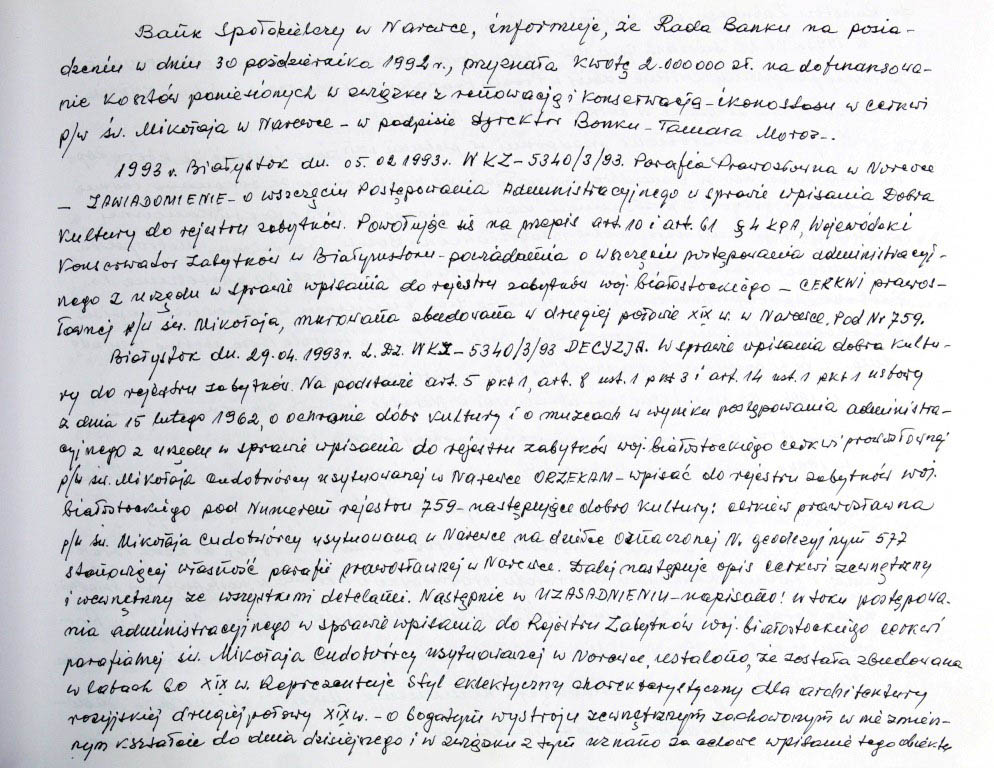 Bank Spółdzielczy w Narewce, informuje, że Rada Banku na posia-
dzeniu w dniu 30 października 1992 r., przyznała kwotę 2.000000 zł. na dofinansowa-
nie kosztów poniesionych w związku z renowacją i konserwacją - ikonostasu w cerkwi
p/w św. Mikołaja w Narewce - w podpisie dyrektor Banku - Tamara Moroz -.
1993 r. Białystok dn. 05.02 1993 r. WKZ - 5340/3/93. Parafia Prawosławna w Narewce
- ZAWIADOMIENIE - o wszczęciu Postępowania Administracyjnego w sprawie wpisania Dobra
Kultury do rejestru zabytków. Powołując się na przepis art. 10 i art. 61 § 4 KPA, Wojewódzki
Konserwator Zabytków w Białymstoku - powiadamia o wszczęciu postępowania administracyj-
nego z urzędu w sprawie wpisania do rejestru zabytków woj. białostockiego - CERKWI prawos-
ławnej p/w św. Mikołaja, murowana zbudowana w drugiej połowie XIX w. w Narewce. Pod Nr 759.
Białystok dn. 29.04.1993 r. L.Dz. WKZ - 5340/3/93 DECYZJA. W sprawie wpisania dobra kultu-
ry do rejestru zabytków. Na podstawie art. 5 pkt 1, art. 8 ust. 1 pkt 3 i art. 14 ust. 1 pkt 1 ustawy
z dnia 15 lutego 1962, o ochronie dóbr kultury i o muzeach w wyniku postępowania administra-
cyjnego z urzędu w sprawie wpisania do rejestru zabytków woj. białostockiego cerkwi prawosławnej
p/w św. Mikołaja Cudotwórcy usytuowanej w Narewce ORZEKAM - wpisać do rejestru zabytków woj.
białostockiego pod Numerem rejestru 759 - następujące dobro kultury: cerkiew prawosławna
p/w św. Mikołaja Cudotwórcy usytuowana w Narewce na działce oznaczonej N. geodezyjnym 577
stanowiącej własność parafii prawosławnej w Narewce. Dalej następuje opis cerkwi zewnętrzny
i wewnętrzny ze wszystkimi detalami. Następnie w UZASADNIENIU - napisano: w toku postępowa-
nia administracyjnego w sprawie wpisania do Rejestru Zabytków woj. białostockiego cerkwi
parafialnej św. Mikołaja Cudotwórcy usytuowanej w Narewce, ustalono, że została zbudowana
w latach 60 XIX w. Reprezentuje styl eklektyczny charakterystyczny dla architektury
rosyjskiej drugiej połowy XIX w. - o bogatym wystroju zewnętrznym zachowanym w nie zmien-
nym kształcie do dnia dzisiejszego i w związku z tym uznano za celowe wpisanie tego obiektu